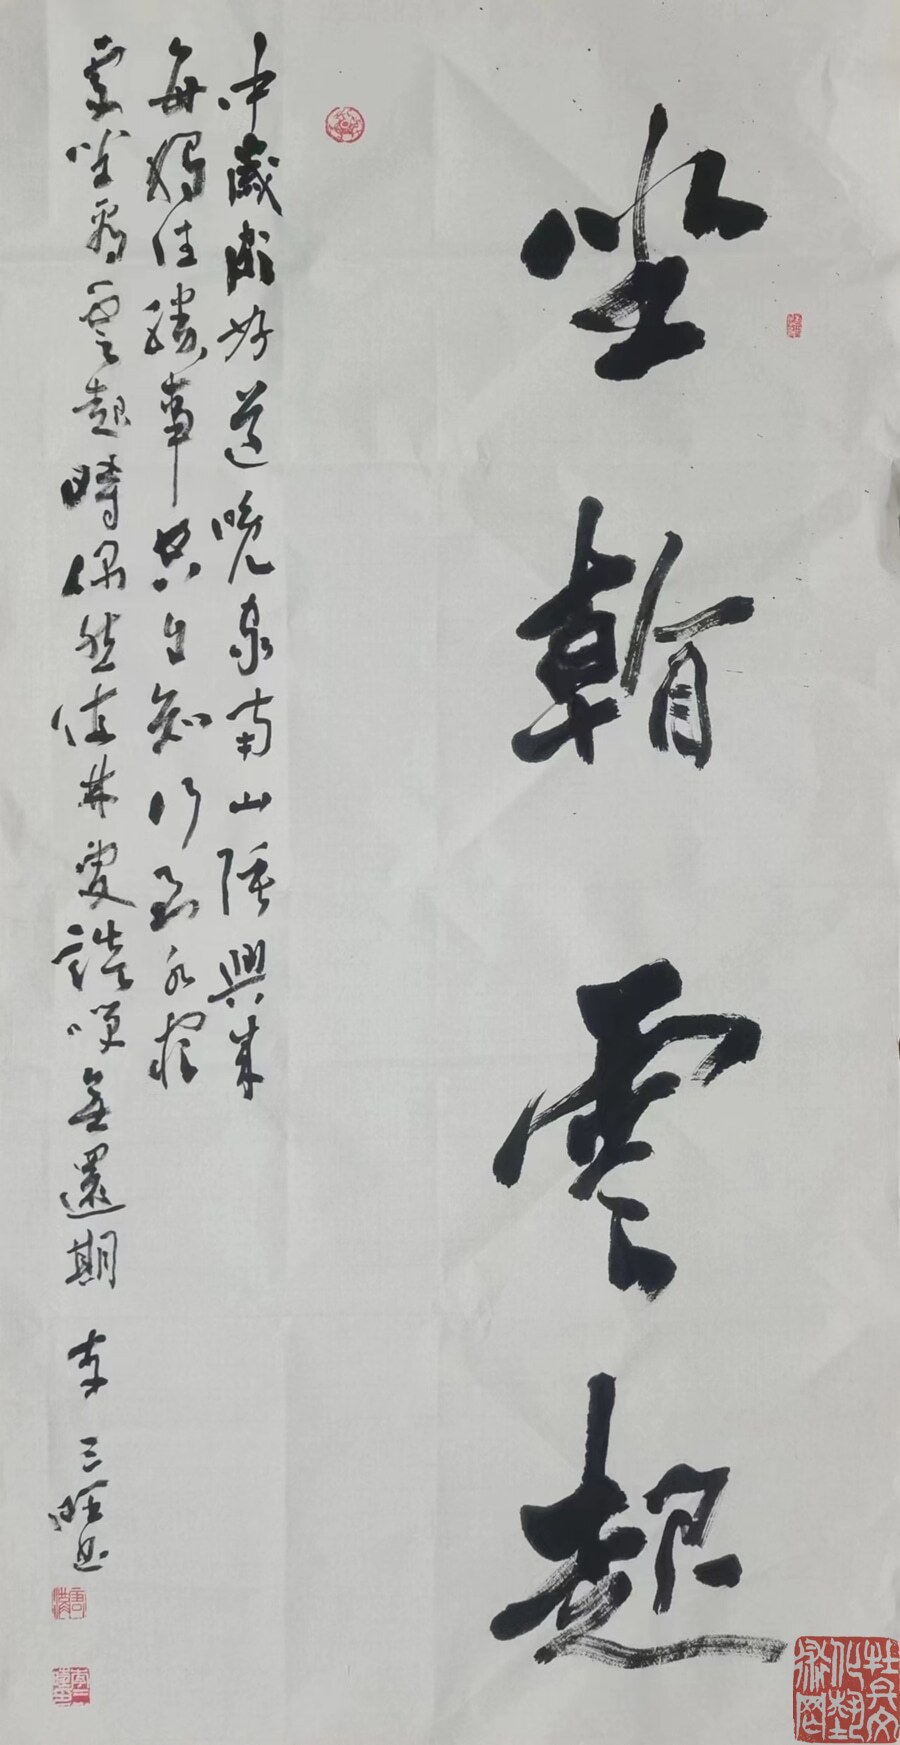 坐看雲起
中歲頗好道晚家南山陲興來
每獨往勝事空自知行到水窮
處坐看雲起時偶然值林叟談笑無還期 李三旺书